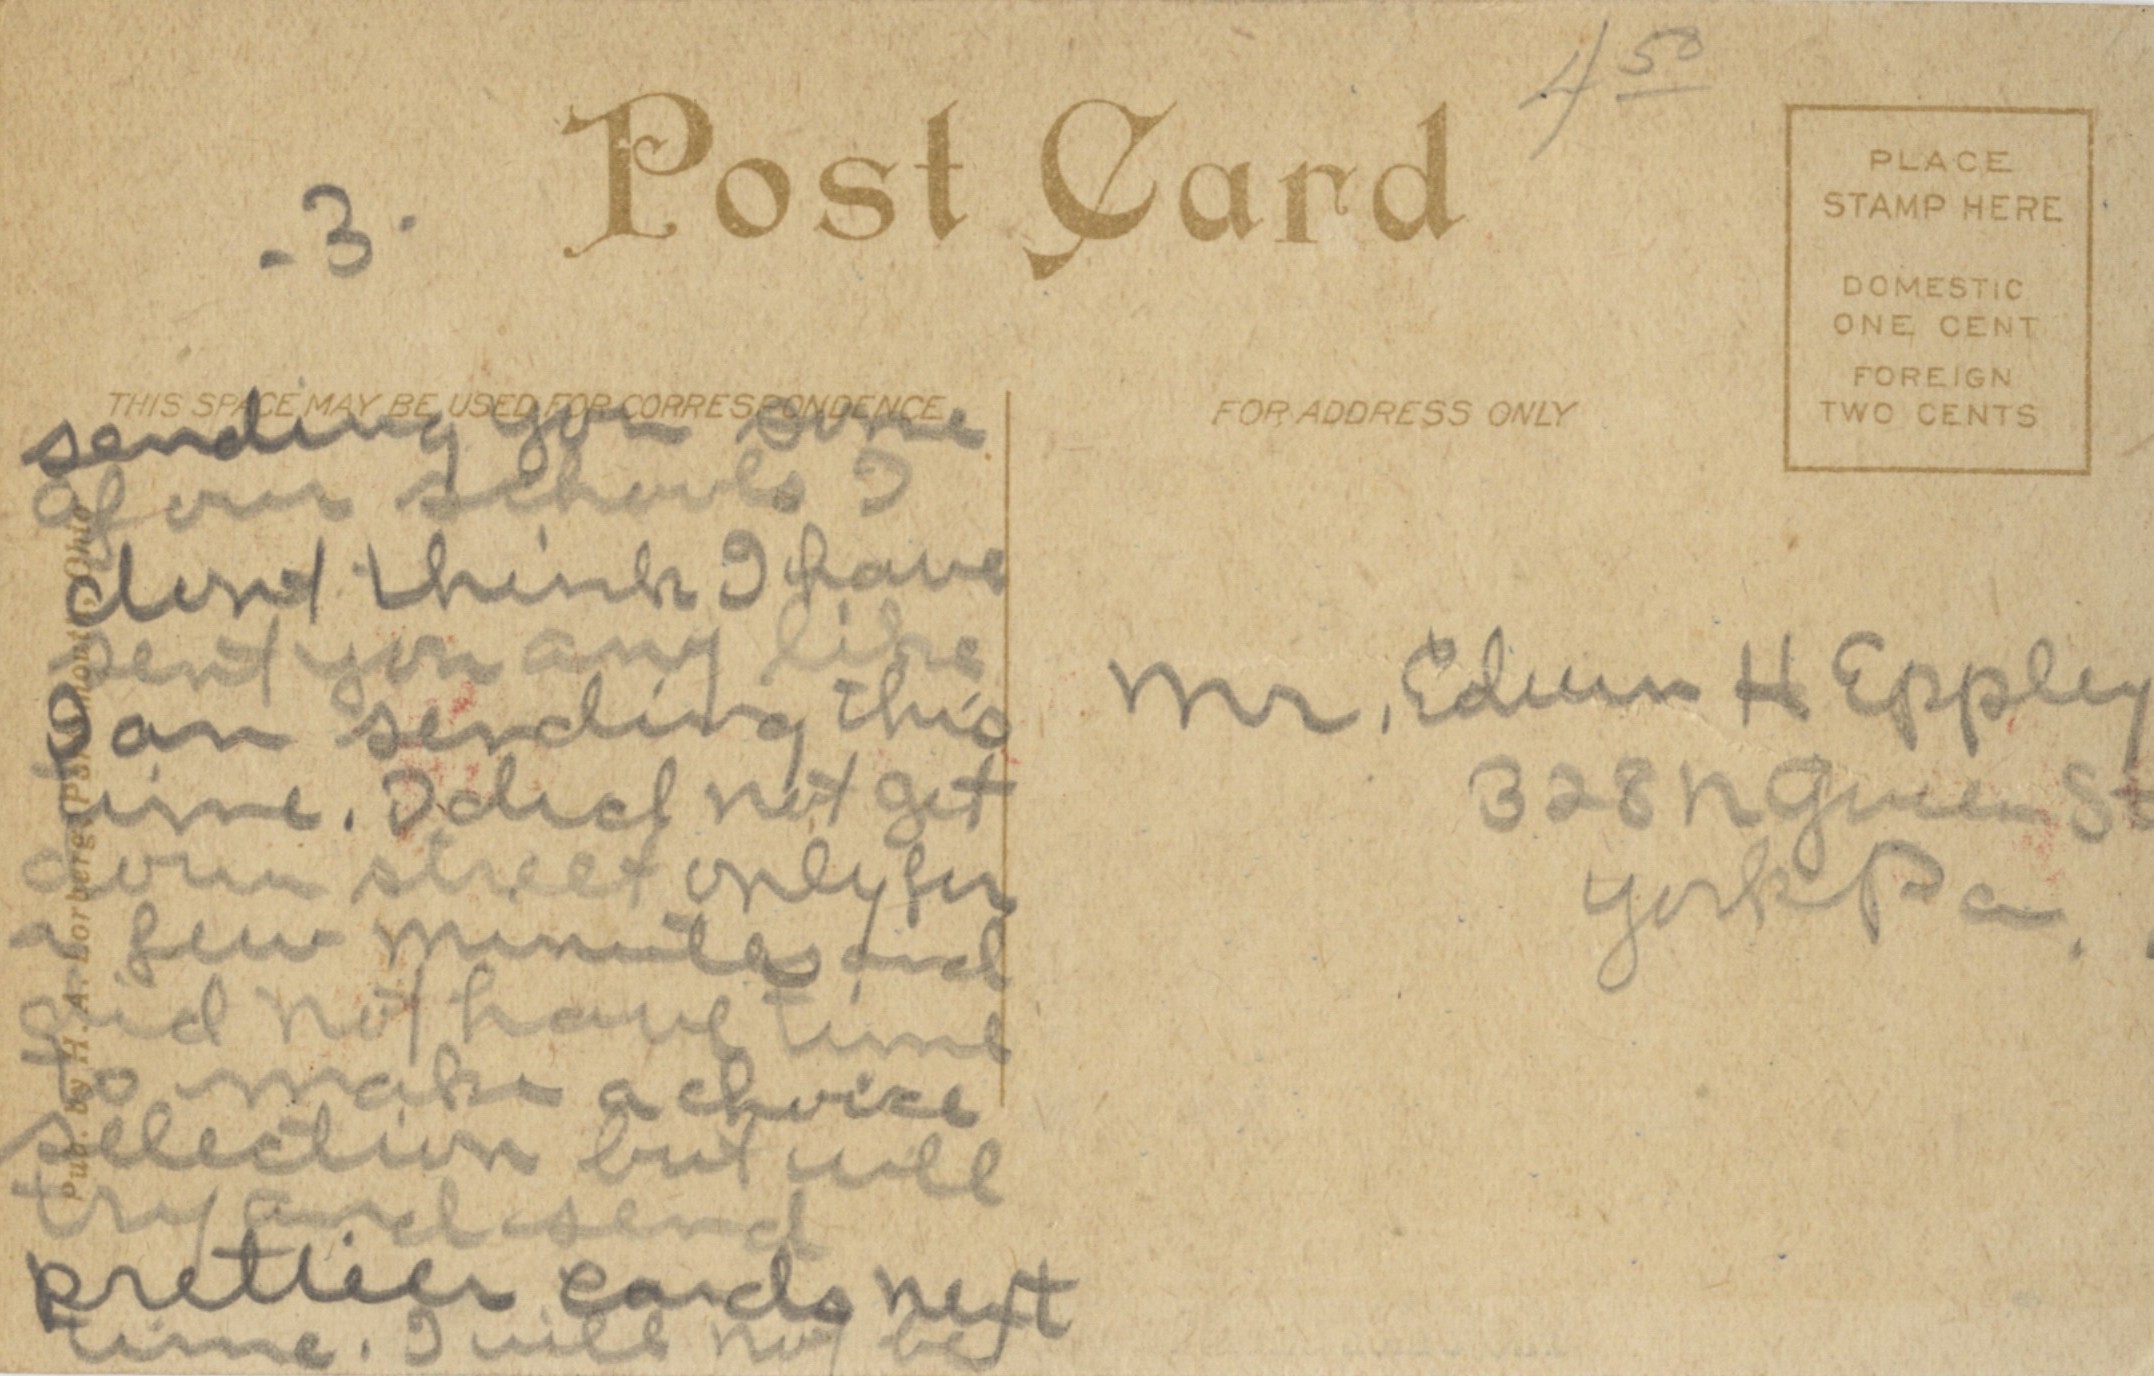 4 50
Post Card
- 3 -
PLACE
STAMP HERE
DOMESTIC
ONE CENT
FOREIGN
TWO CENTS
THIS SPACE MAY BE USED FOR CORRESPONDENCE
FOR ADDRESS ONLY
sending you some
of our schools I
dont think I have
sent you any like
I am sending this
time. I did not get
down street only for
a few minutes and
did not have time
to make a choice
selection but will
try and send
prettier cards next
time. I will not be
Mr. Edwin H Eppley
328 N Queen St
York Pa.
Pub. by H. A. Lorberg, Portsmouth, Ohio